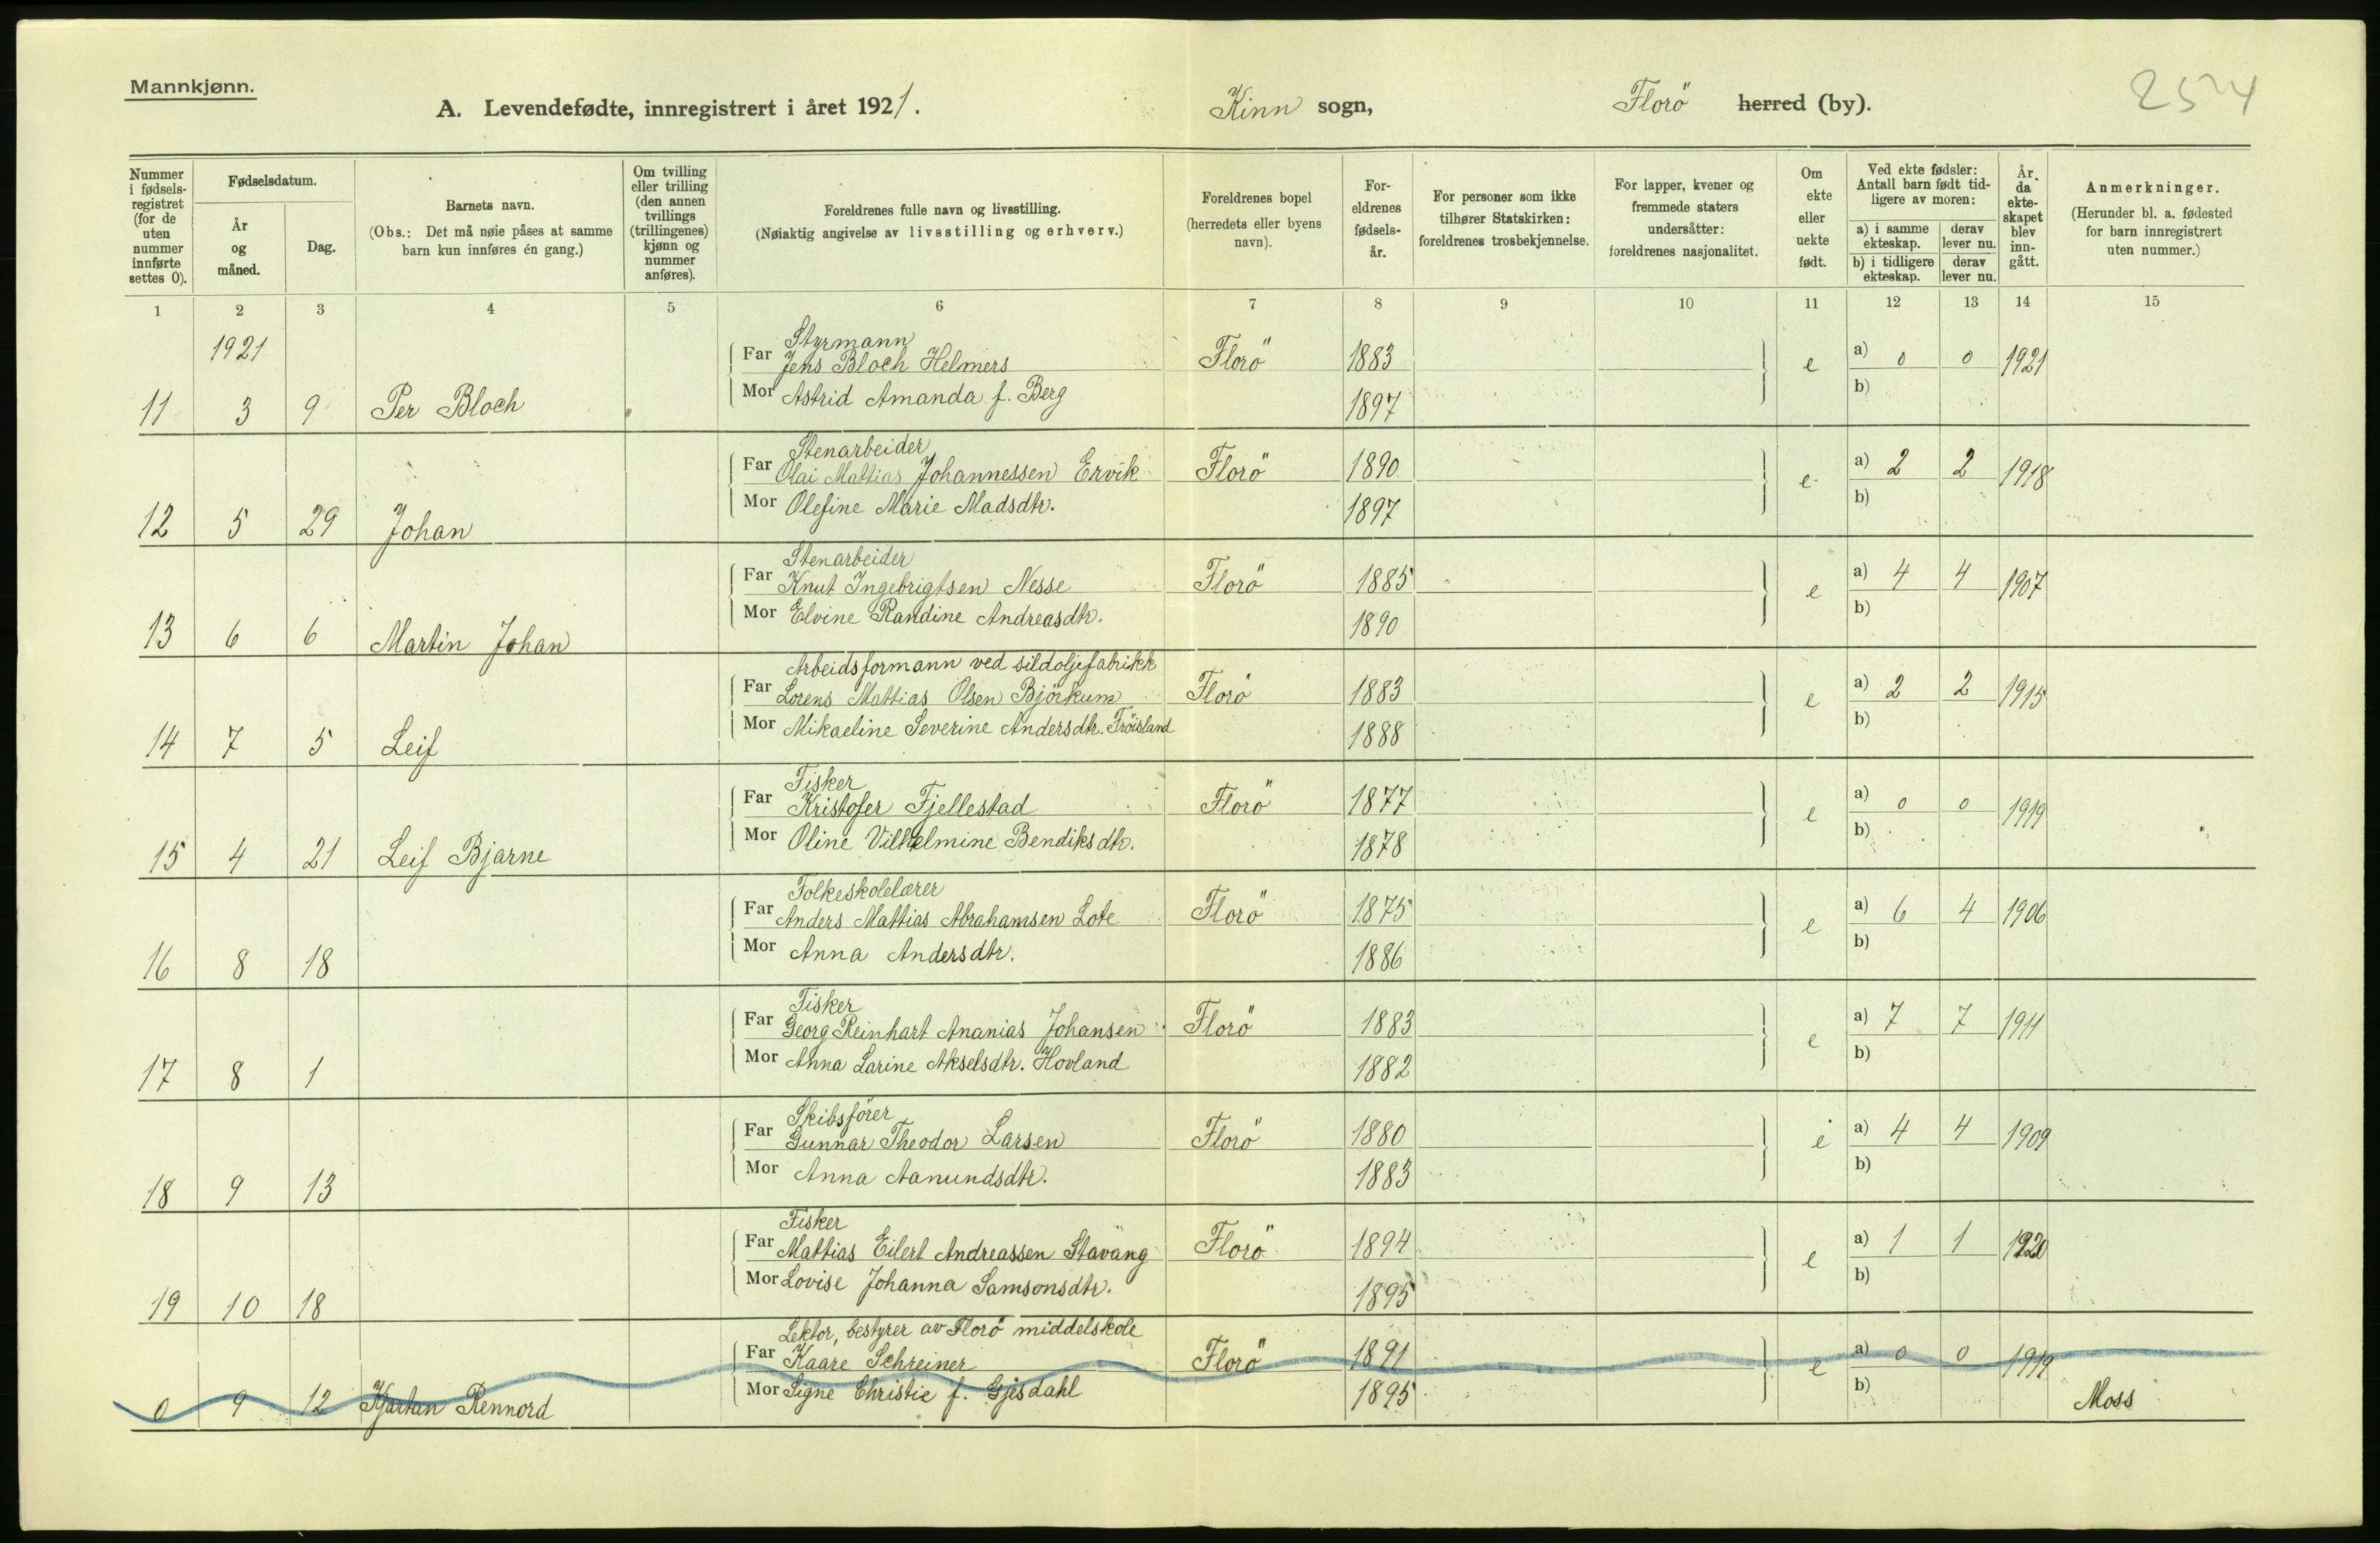 Mannkjønn.
A. Levendefødte, innregistrert i året 1921. Kinn sogn, Florö herred (by). 2574
Nummer i fødselsregistret (for de uten nummer innførte settes 0).
Fødselsdatum.
År og måned.
Dag.
Barnets navn.
(Obs.: Det må nøie påses at samme barn kun innføres én gang.)
Om tvilling eller trilling (den annen tvillings (trillingenes) kjønn og nummer anføres).
Foreldrenes fulle navn og livsstilling.
(Nøiaktig angivelse av livsstilling og erhverv.)
Foreldrenes bopel (herredets eller byens navn).
Foreldrenes fødselsår.
For personer som ikke tilhører Statskirken: foreldrenes trosbekjennelse.
For lapper, kvener og fremmede staters undersåtter: foreldrenes nasjonalitet.
Om ekte eller uekte født.
Ved ekte fødsler: Antall barn født tidligere av moren:
a) i samme ekteskap.
derav lever nu.
b) i tidligere ekteskap.
derav lever nu.
År da ekteskapet blev inngått.
Anmerkninger.
(Herunder bl. a. fødested for barn innregistrert uten nummer.)
1 2 3 4 5 6 7 8 9 10 11 12 13 14 15
1921
Styrmann
Far Jens Bloch Helmers Florö 1883 e a) 0 0 1921
Mor Astrid Amanda f. Berg 1897 b)
11 3 9 Per Bloch
Stenarbeider
Far Olai Mattias Johannessen Ervik Florö 1890 e a) 2 2 1918
Mor Olefine Marie Madsdtr. 1897 b)
12 5 29 Johan
Stenarbeider
Far Knut Ingebrigtsen Nesse Florö 1885 e a) 4 4 1907
Mor Elvine Randine Andreasdtr. 1890 b)
13 6 6 Martin Johan
Arbeidsformann ved sildoljefabrikk
Far Lorens Mattias Olsen Björkum Florö 1883 e a) 2 2 1915
Mor Mikaeline Severine Andersdtr. Tröisland 1888 b)
14 7 5 Leif
Fisker
Far Kristofer Fjellestad Florö 1877 e a) 0 0 1919
Mor Oline Vilhelmine Bendiksdtr. 1878 b)
15 4 21 Leif Bjarne
Folkeskolelærer
Far Anders Mattias Abrahamsen Lote Florö 1875 e a) 6 4 1906
Mor Anna Andersdtr. 1886 b)
16 8 18
Fisker
Far Georg Reinhart Ananias Johansen Florö 1883 e a) 7 7 1911
Mor Anna Larine Akselsdtr. Hovland 1882 b)
17 8 1
Skibsförer
Far Gunnar Theodor Larsen Florö 1880 e a) 4 4 1909
Mor Anna Aanundsdtr. 1883 b)
18 9 13
Fisker
Far Mattias Eilert Andreassen Stavang Florö 1894 e a) 1 1 1920
Mor Lovise Johanna Samsonsdtr. 1895 b)
19 10 18
Lektor, bestyrer av Florö middelskole
Far Kaare Schreiner Florö 1891 e a) 0 0 1919
Mor Signe Christie f. Gjesdahl 1895 b)
0 9 12 Kjartan Rennord Moss